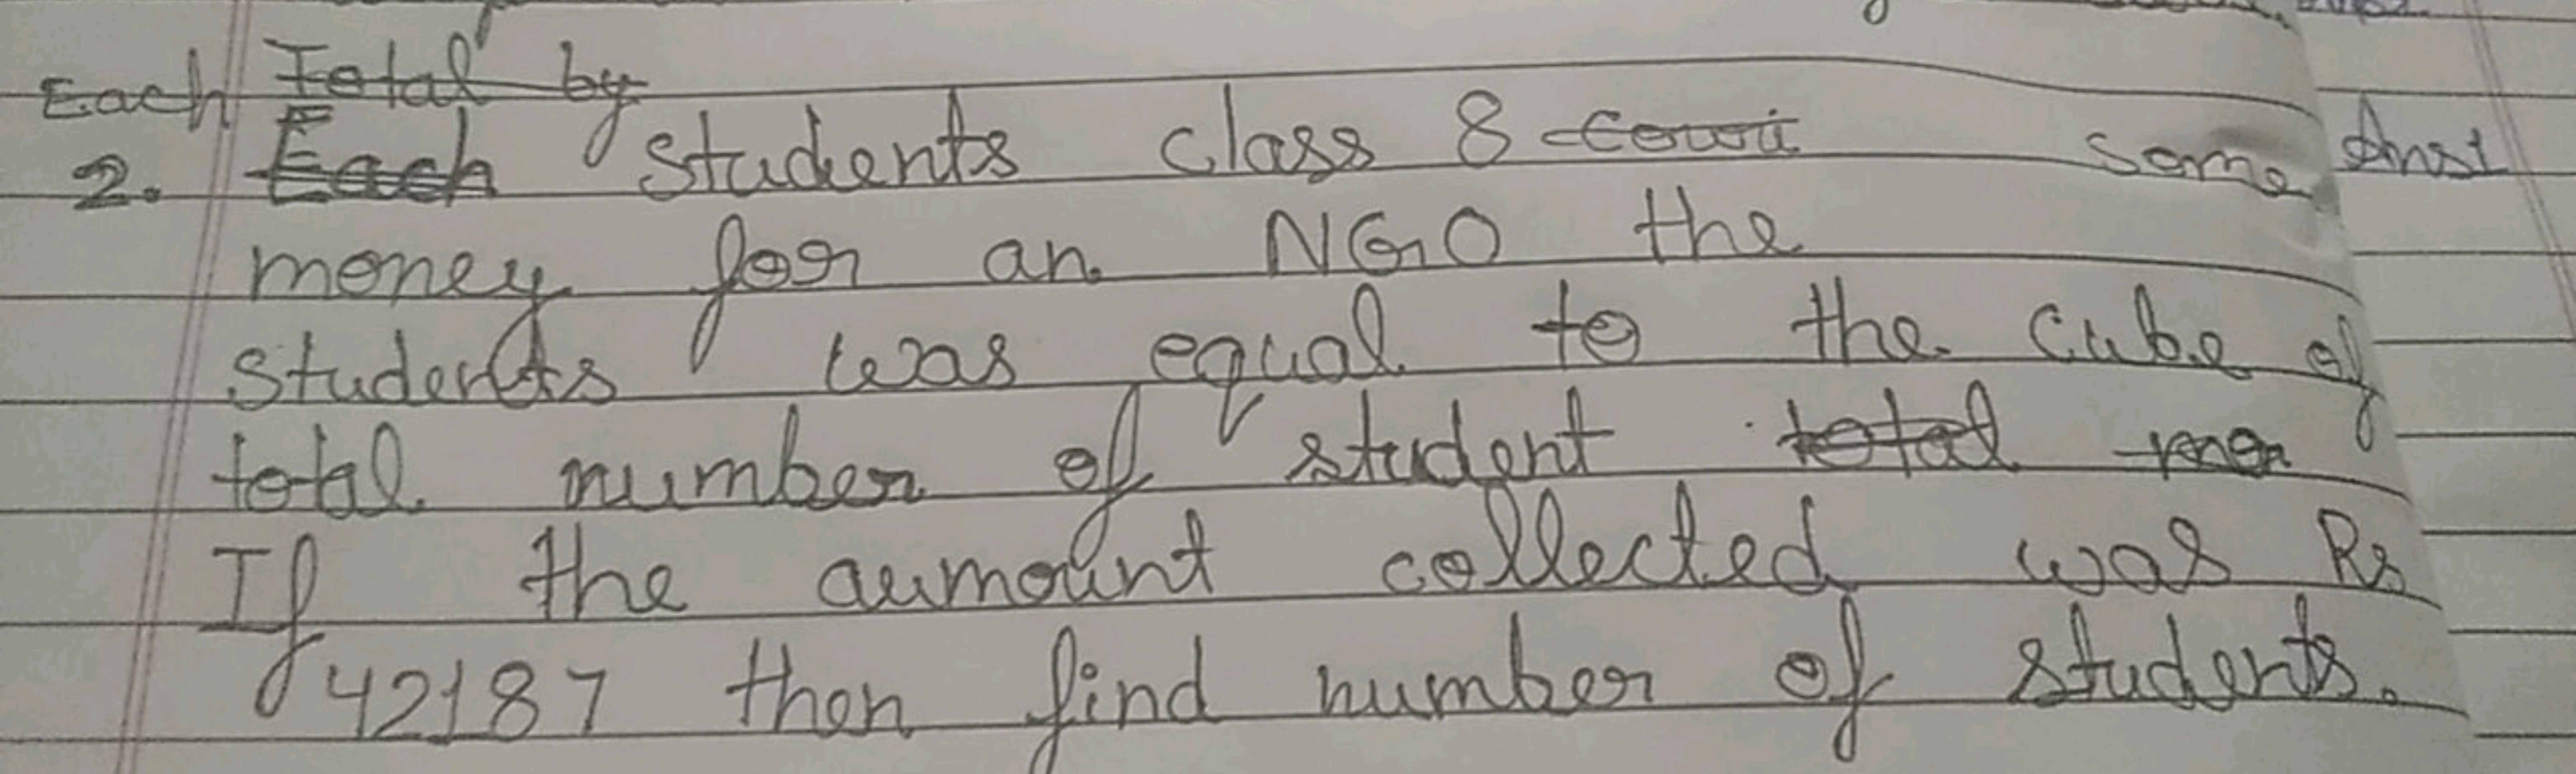 Each Total by
2. Each students class 8 some Ans1
money for an NGO the
students was equal to the cube of
total number of student total mon
If the aumount collected was Rs
42187 then find number of students.